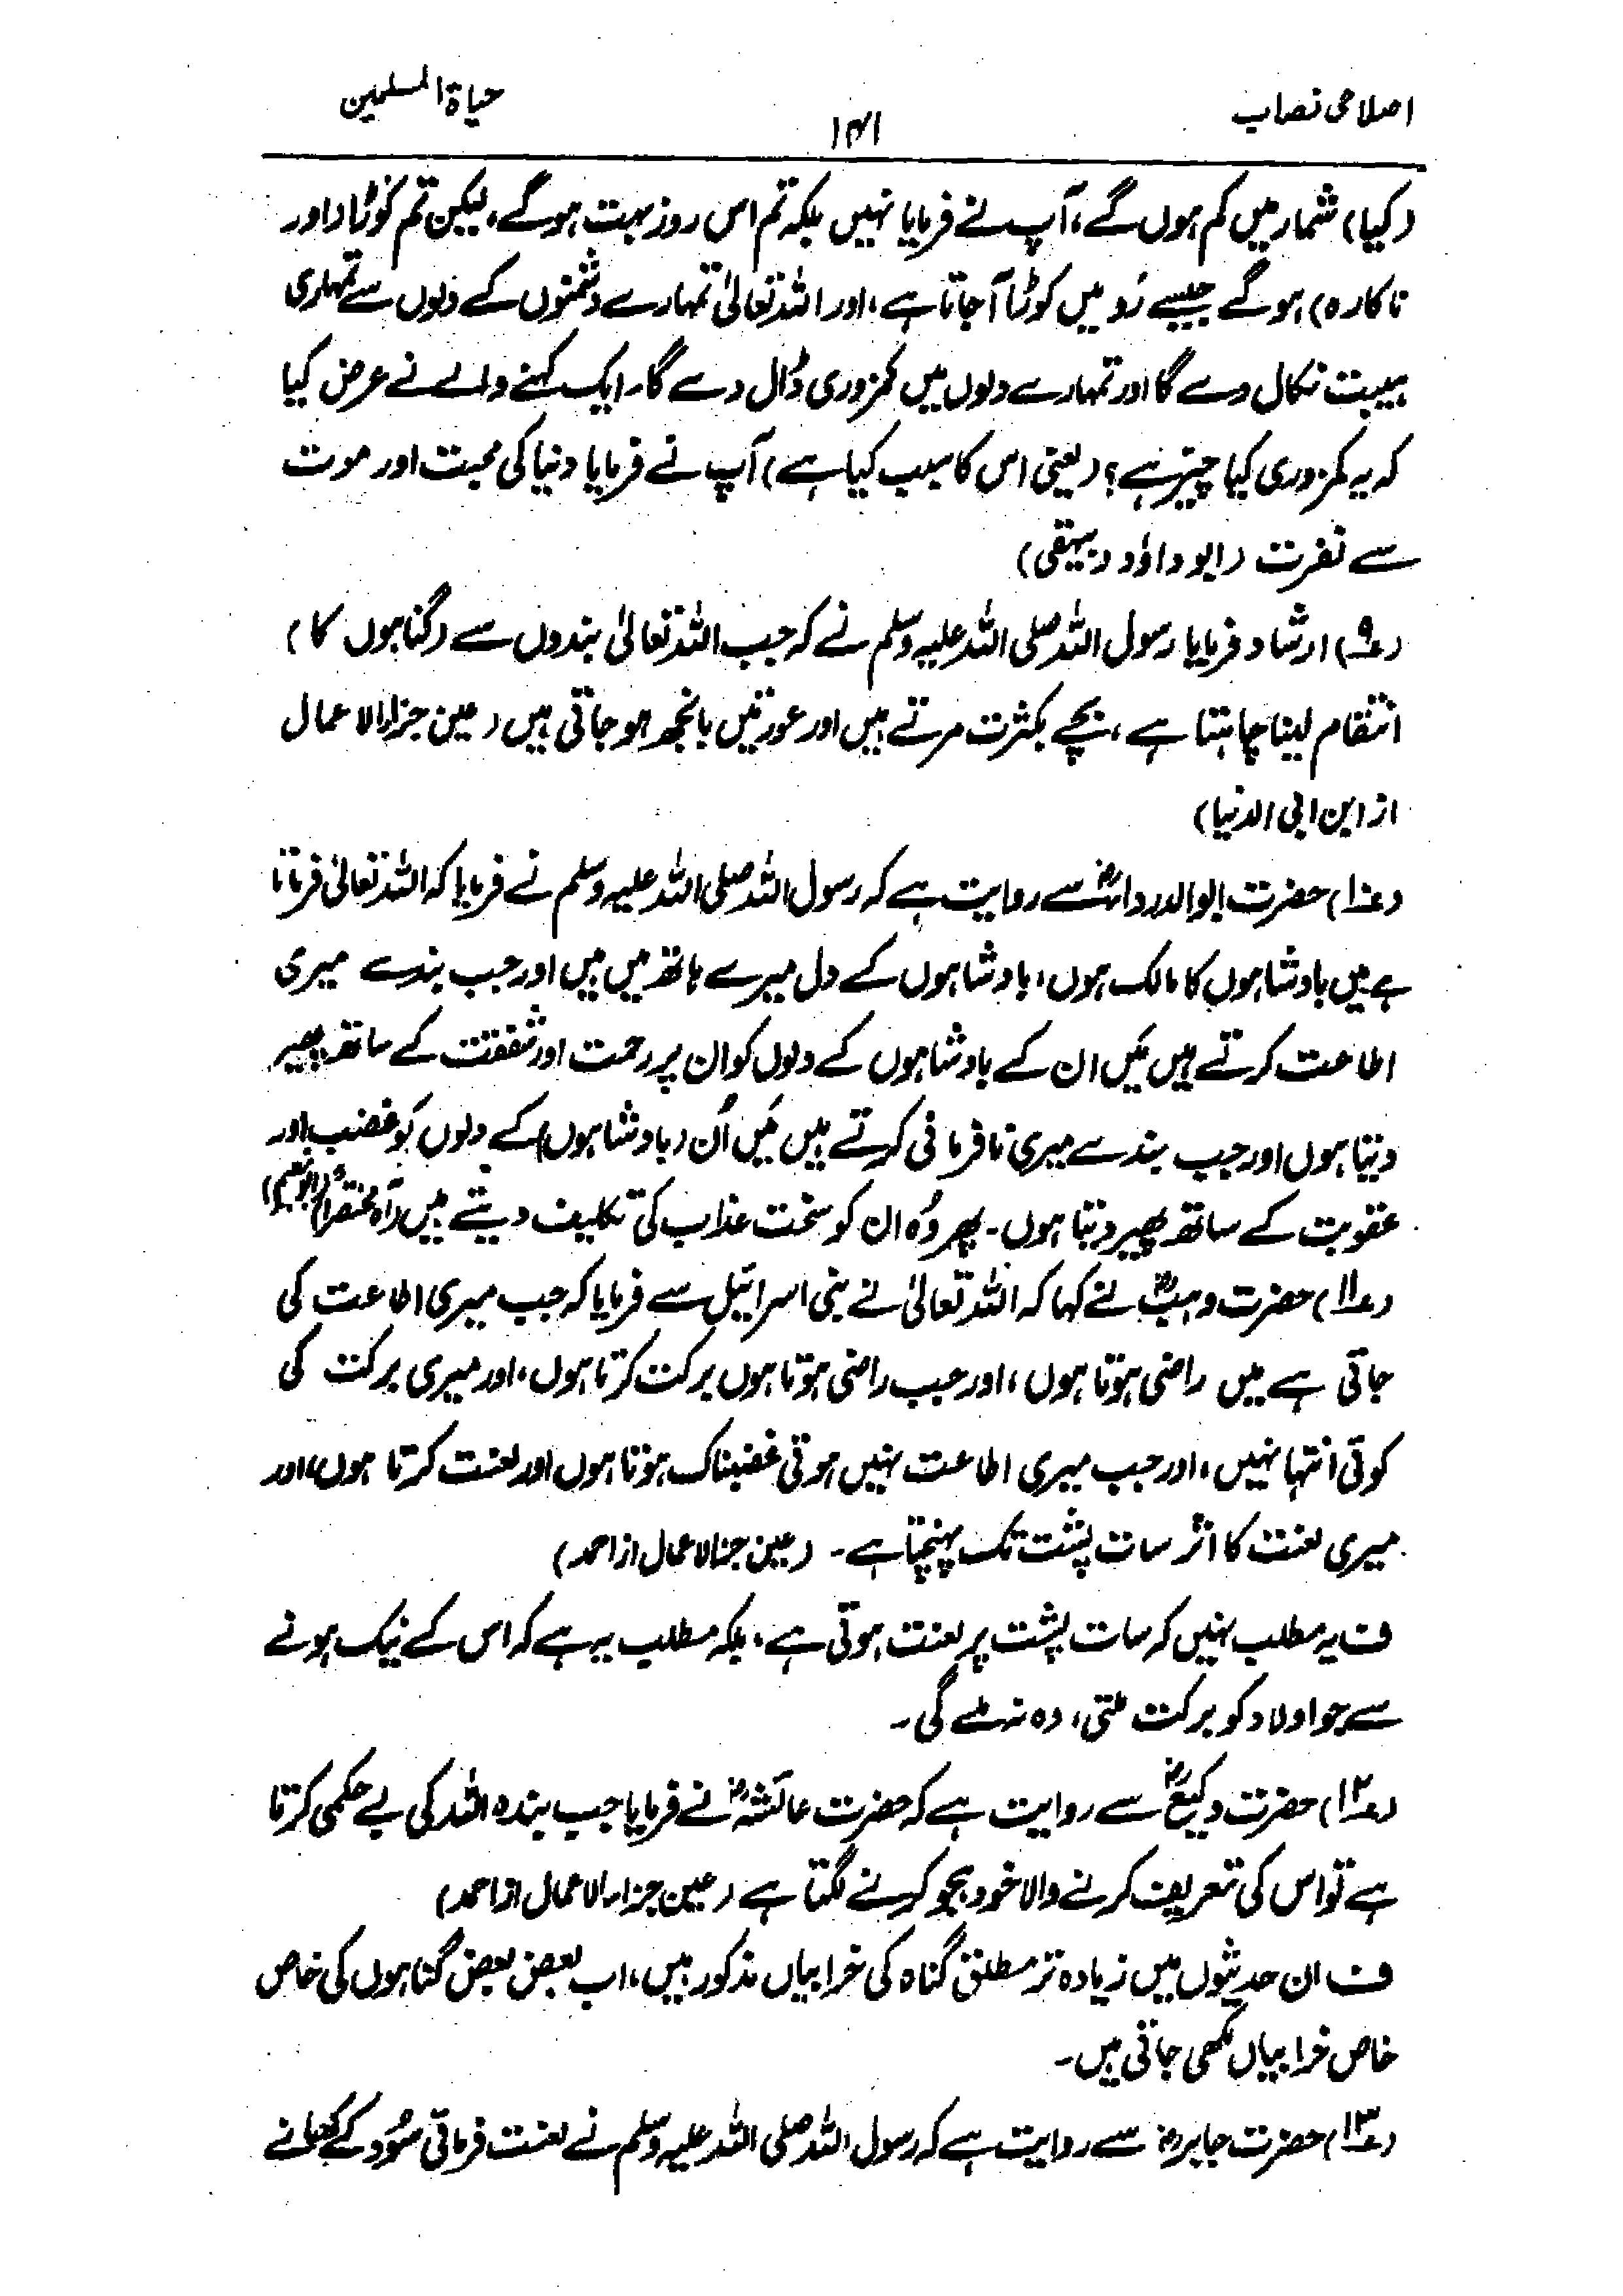 اصلاحی نصاب
۱۴۱
حیاۃ المسلمین
(کیا) شمار میں کم ہوں گے، آپ نے فرمایا نہیں بلکہ تم اس روز بہت ہو گے، لیکن تم کوڑا (اور
ناکارہ) ہو گے جیسے رَو میں کوڑا آ جاتا ہے، اور اللہ تعالیٰ تمہارے دشمنوں کے دلوں سے تمہاری
ہیبت نکال دے گا اور تمہارے دلوں میں کمزوری ڈال دے گا۔ ایک کہنے والے نے عرض کیا
کہ یہ کمزوری کیا چیز ہے؟ (یعنی اس کا سبب کیا ہے) آپ نے فرمایا دنیا کی محبت اور موت
سے نفرت (ابو داؤد و بیہقی)
(ع۹) ارشاد فرمایا رسول اللہ صلی اللہ علیہ وسلم نے کہ جب اللہ تعالیٰ بندوں سے (گناہوں کا)
انتقام لینا چاہتا ہے، بچے بکثرت مرتے ہیں اور عورتیں بانجھ ہو جاتی ہیں (عین جزاء الاعمال
از ابن ابی الدنیا)
(ع۱۰) حضرت ابوالدرداءؓ سے روایت ہے کہ رسول اللہ صلی اللہ علیہ وسلم نے فرمایا کہ اللہ تعالیٰ فرماتا
ہے میں بادشاہوں کا مالک ہوں، بادشاہوں کے دل میرے ہاتھ میں ہیں اور جب بندے میری
اطاعت کرتے ہیں مَیں ان کے بادشاہوں کے دلوں کو ان پر رحمت اور شفقت کے ساتھ پھیر
دیتا ہوں اور جب بندے میری نافرمانی کرتے ہیں مَیں اُن (بادشاہوں) کے دلوں کو غضب اور
عقوبت کے ساتھ پھیر دیتا ہوں۔ پھر وُہ ان کو سخت عذاب کی تکلیف دیتے ہیں (آہ مختصراً) (ابونعیم)
(ع۱۱) حضرت وہبؒ نے کہا کہ اللہ تعالیٰ نے بنی اسرائیل سے فرمایا کہ جب میری اطاعت کی
جاتی ہے میں راضی ہوتا ہوں، اور جب راضی ہوتا ہوں برکت کرتا ہوں، اور میری برکت کی
کوئی انتہا نہیں، اور جب میری اطاعت نہیں ہوتی غضبناک ہوتا ہوں اور لعنت کرتا ہوں، اور
میری لعنت کا اثر سات پشت تک پہنچتا ہے۔ (عین جزا الاعمال از احمد)
ف یہ مطلب نہیں کہ سات پشت پر لعنت ہوتی ہے، بلکہ مطلب یہ ہے کہ اس کے نیک ہونے
سے جو اولاد کو برکت ملتی، وہ نہ ملے گی۔
(ع۱۲) حضرت وکیعؒ سے روایت ہے کہ حضرت عائشہؓ نے فرمایا جب بندہ اللہ کی بے حکمی کرتا
ہے تو اس کی تعریف کرنے والا خود ہجو کرنے لگتا ہے (عین جزاء الاعمال از احمد)
ف ان حدیثوں میں زیادہ تر مطلق گناہ کی خرابیاں مذکور ہیں، اب بعض بعض گناہوں کی خاص
خاص خرابیاں لکھی جاتی ہیں۔
(ع۱۳) حضرت جابرؓ سے روایت ہے کہ رسول اللہ صلی اللہ علیہ وسلم نے لعنت فرمائی سُود کے کھانے